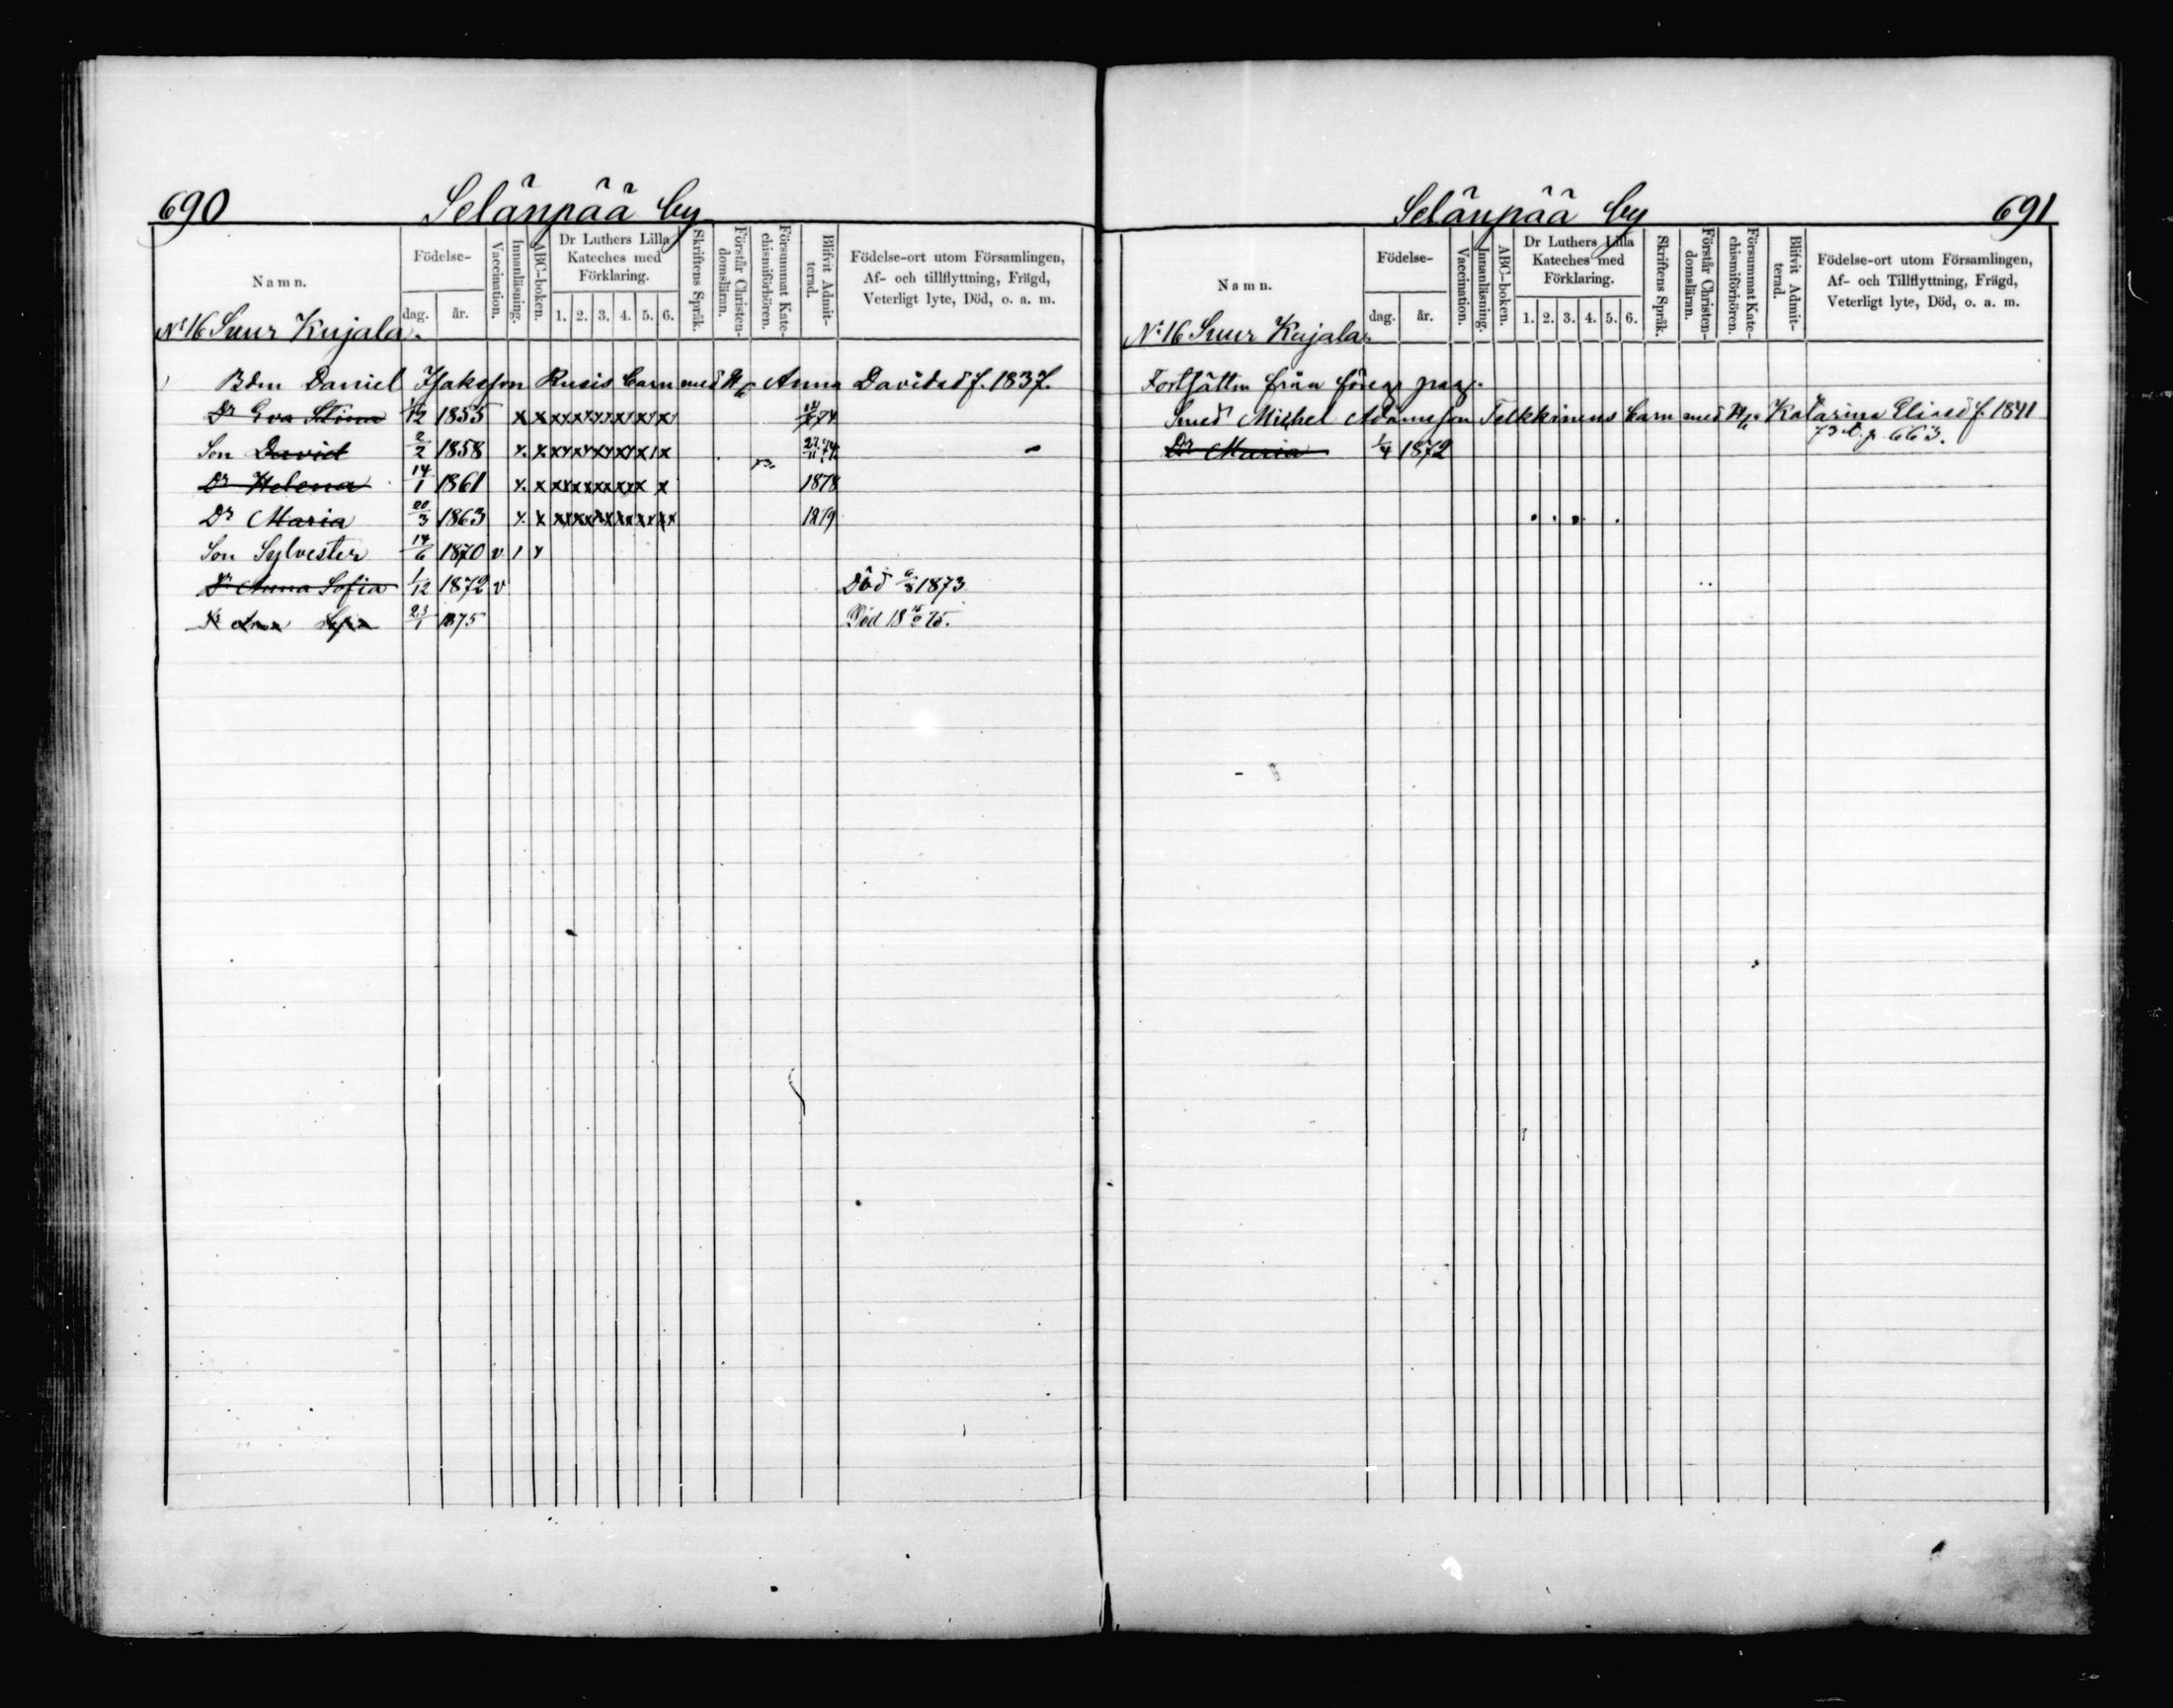 690 Selänpää by
Namn. Födelse- dag. år. Vaccination. Innanläsning. ABC-boken. Dr Luthers Lilla Kateches med Förklaring. 1. 2. 3. 4. 5. 6. Skriftens Språk. Förstår Christendomsläran. Försummat Katechismiförhören. Blifvit Admitterad. Födelse-ort utom Församlingen, Af- och tillflyttning, Frägd, Veterligt lyte, Död, o. a. m.
No 16 Suur Kujala.
Bdn Daniel Isaksson Rusis barn med Anna Davidsd f. 1837.
Dr Eva Stina 1855 x x 74
Son David 2/2 1858 x x
Dr Helena 14/1 1861 x x 1878
Dr Maria 20/3 1863 x x 1879
Son Sylvester 14/6 1870 v
Dr Anna Sofia 1/12 1872 v Död 1873
Dr Anna Sofia 23/1 1875 Död
Selänpää by 691
Namn. Födelse- dag. år. Vaccination. Innanläsning. ABC-boken. Dr Luthers Lilla Kateches med Förklaring. 1. 2. 3. 4. 5. 6. Skriftens Språk. Förstår Christendomsläran. Försummat Katechismiförhören. Blifvit Admitterad. Födelse-ort utom Församlingen, Af- och Tillflyttning, Frägd, Veterligt lyte, Död, o. a. m.
No 16 Suur Kujala.
Fortsättn från föreg pag.
Smed Michel Adamsson Telkkinens barn med Katarina Eliasd f. 1841
73 p. 663.
Dr Maria 1/4 1872